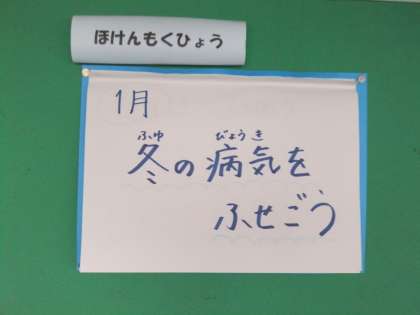 ほけんもくひょう
1月
ふゆ びょうき
冬の病気を
ふせごう